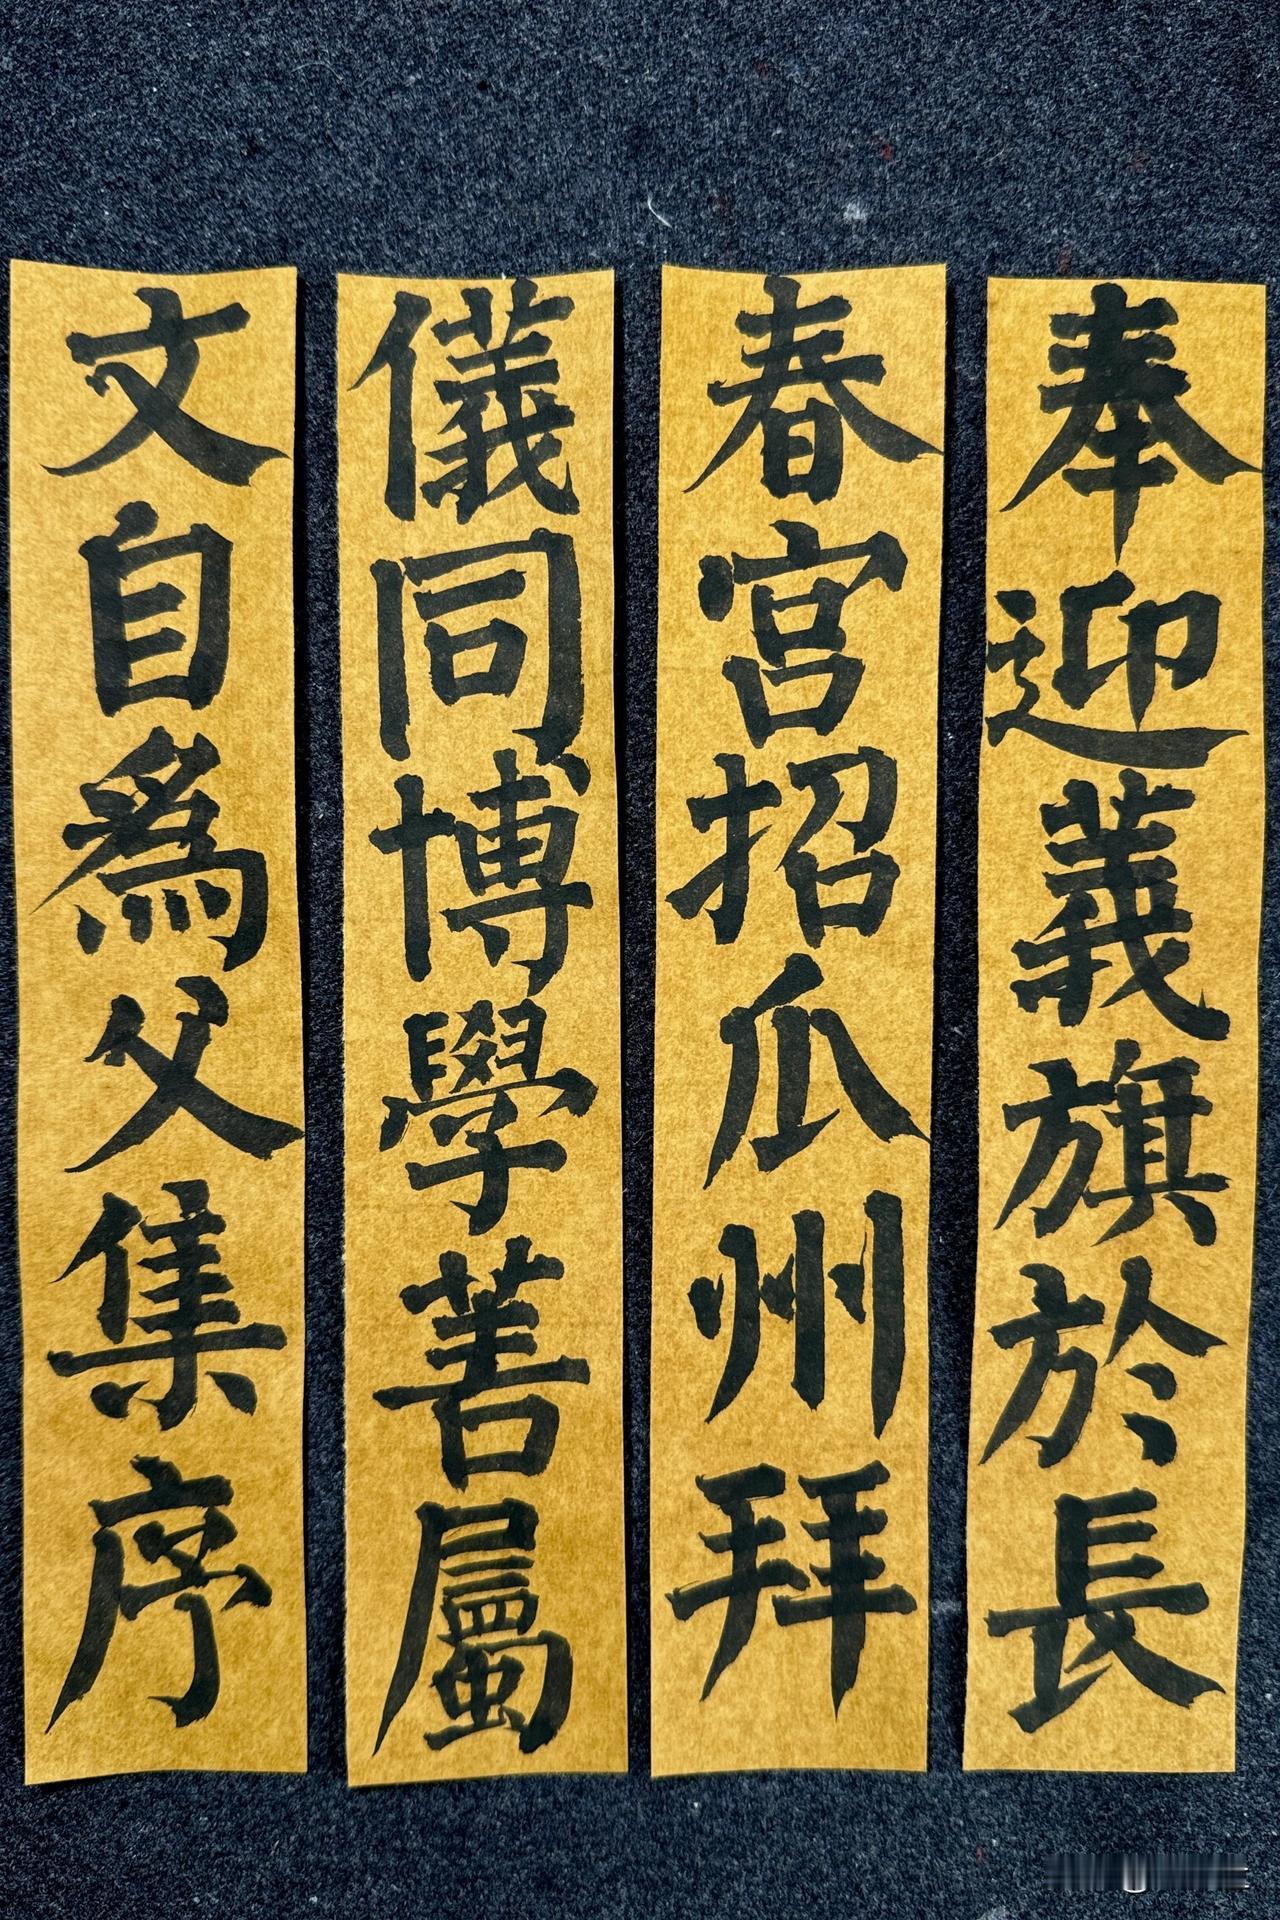 奉迎義旗於長
春宮招瓜州拜
儀同博學善屬
文自為父集序